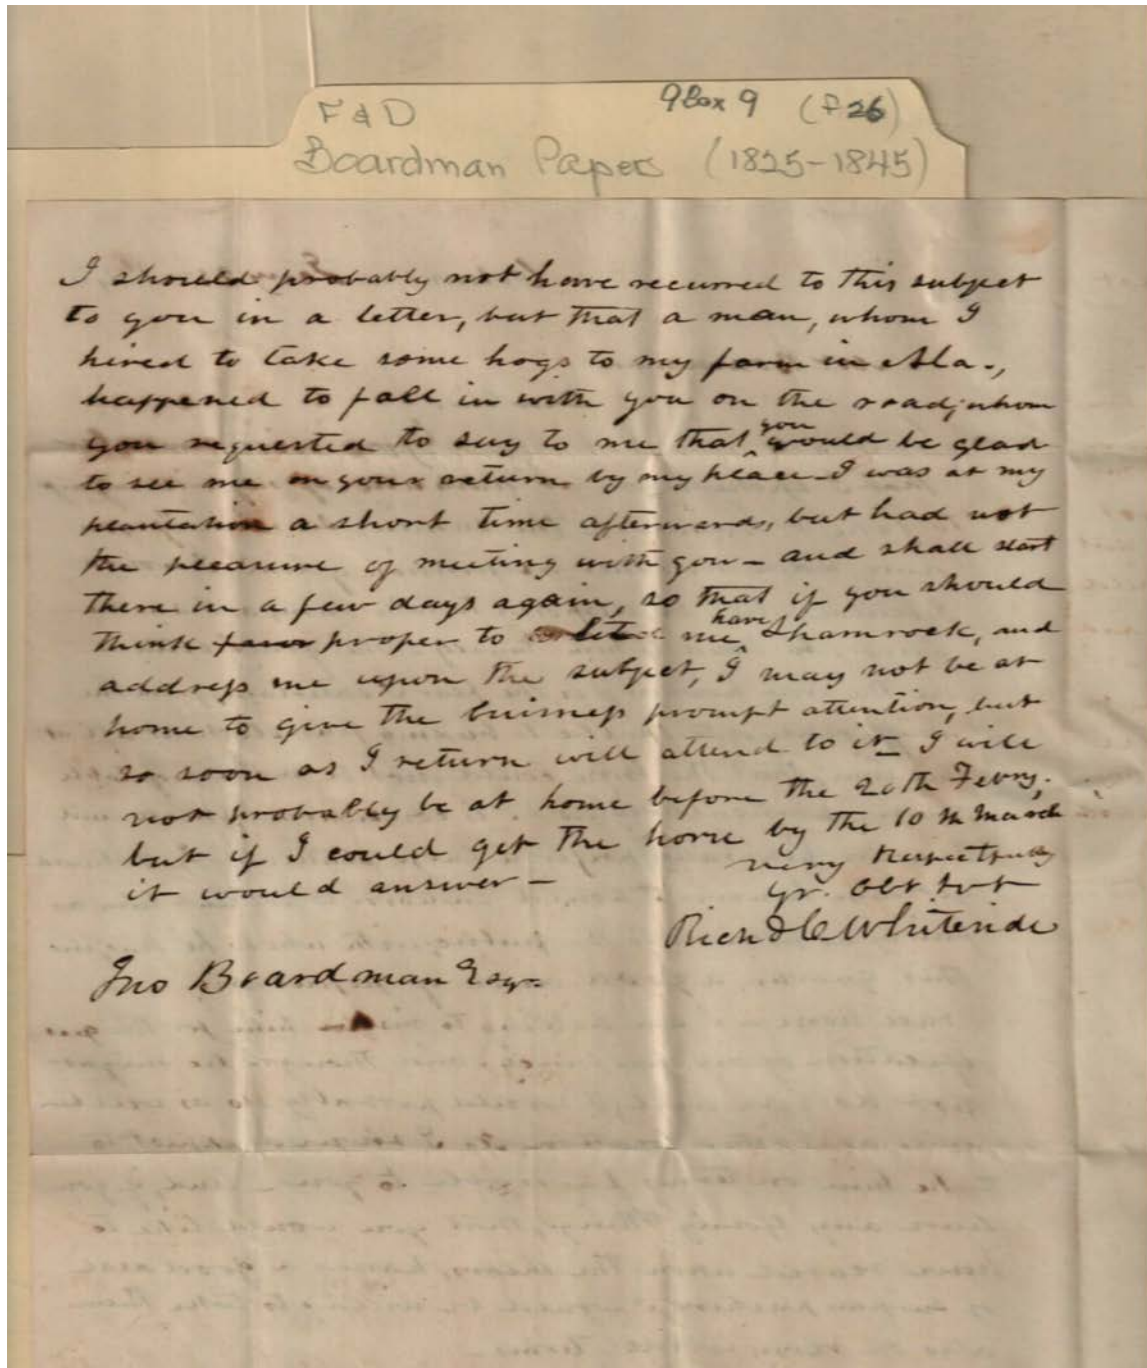 F & D
Box 9 (f 26)
Boardman Papers (1825-1845)
I should probably not have recurred to this subject
to you in a letter, but that a man, whom I
hired to take some hogs to my farm in Ala.,
happened to fall in with you on the road, whom
you requested to say to me that you would be glad
to see me on your return by my place - I was at my
plantation a short time afterwards, but had not
the pleasure of meeting with you - and shall start
there in a few days again, so that if you should
think proper to let me have Shamrock, and
address me upon the subject, I may not be at
home to give the buisness prompt attention, but
so soon as I return will attend to it - I will
not probably be at home before the 20th Febry.
but if I could get the horse by the 10th March
it would answer -
very Respectfully
yr. Obt. Svt
Richd C Whiteside
Jno Boardman Esqr.